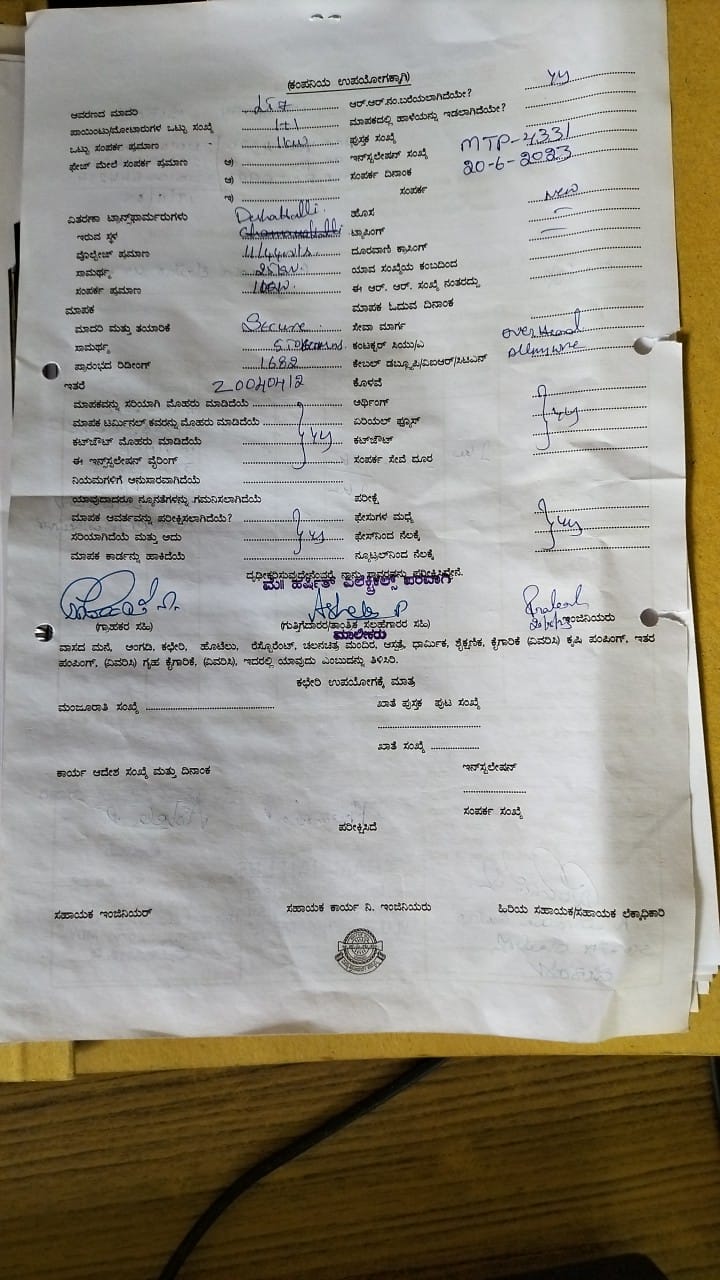 (ಕಂಪನಿಯ ಉಪಯೋಗಕ್ಕಾಗಿ)
ಆವರಣದ ಮಾದರಿ ಆರ್.ಆರ್.ನಂ.ಬರೆಯಲಾಗಿದೆಯೇ?
ಪಾಯಿಂಟು/ಮೋಟಾರುಗಳ ಒಟ್ಟು ಸಂಖ್ಯೆ 1+1 ಮಾಪಕದಲ್ಲಿ ಹಾಳೆಯನ್ನು ಇಡಲಾಗಿದೆಯೇ?
ಒಟ್ಟು ಸಂಪರ್ಕ ಪ್ರಮಾಣ 1kw ಪುಸ್ತಕ ಸಂಖ್ಯೆ
ಫೇಜ್ ಮೇಲೆ ಸಂಪರ್ಕ ಪ್ರಮಾಣ ಅ) ಇನ್‌ಸ್ಟಲೇಷನ್ ಸಂಖ್ಯೆ MTP-4331
ಆ) ಸಂಪರ್ಕ ದಿನಾಂಕ 20-6-2023
ಇ) ಸಂಪರ್ಕ
ವಿತರಣಾ ಟ್ರಾನ್ಸ್‌ಫಾರ್ಮರುಗಳು ಹೊಸ New
ಇರುವ ಸ್ಥಳ ಟ್ಯಾಪಿಂಗ್ –
ವೋಲ್ಟೇಜ್ ಪ್ರಮಾಣ ದೂರವಾಣಿ ಕ್ರಾಸಿಂಗ್ –
ಸಾಮರ್ಥ್ಯ ಯಾವ ಸಂಖ್ಯೆಯ ಕಂಬದಿಂದ
ಸಂಪರ್ಕ ಪ್ರಮಾಣ ಈ ಆರ್. ಆರ್. ಸಂಖ್ಯೆ ನಂತರದ್ದು
ಮಾಪಕ ಮಾಪಕ ಓದುವ ದಿನಾಂಕ
ಮಾದರಿ ಮತ್ತು ತಯಾರಿಕೆ Secure ಸೇವಾ ಮಾರ್ಗ over Head
ಸಾಮರ್ಥ್ಯ ಕಂಟಕ್ಟರ್ ಸಿಯು/ಎ
ಪ್ರಾರಂಭದ ರಿಡೀಂಗ್ 1682 ಕೇಬಲ್ ಡಬ್ಲ್ಯೂಪಿ/ಎಐಆರ್/ಸಿಟಿಎನ್
ಇತರೆ Z0040412 ಕೊಳವೆ
ಮಾಪಕವನ್ನು ಸರಿಯಾಗಿ ಮೊಹರು ಮಾಡಿದೆಯೆ ಅರ್ಥಿಂಗ್
ಮಾಪಕ ಟರ್ಮಿನಲ್ ಕವರನ್ನು ಮೊಹರು ಮಾಡಿದೆಯೆ ಏರಿಯಲ್ ಫ್ಯೂಸ್
ಕಟ್‌ಔಟ್ ಮೊಹರು ಮಾಡಿದೆಯೆ ಕಟ್‌ಔಟ್
ಈ ಇನ್‌ಸ್ಟಲೇಷನ್ ವೈರಿಂಗ್ ಸಂಪರ್ಕ ಸೇವೆ ದೂರ
ನಿಯಮಗಳಿಗೆ ಅನುಸಾರವಾಗಿದೆಯೆ
ಯಾವುದಾದರೂ ನ್ಯೂನತೆಗಳನ್ನು ಗಮನಿಸಲಾಗಿದೆಯೆ ಪರೀಕ್ಷೆ
ಮಾಪಕ ಆವರ್ತವನ್ನು ಪರೀಕ್ಷಿಸಲಾಗಿದೆಯೆ? ಫೇಸುಗಳ ಮಧ್ಯೆ
ಸರಿಯಾಗಿದೆಯೆ ಮತ್ತು ಅದು ಫೇಸ್‌ನಿಂದ ನೆಲಕ್ಕೆ
ಮಾಪಕ ಕಾರ್ಡನ್ನು ಹಾಕಿದೆಯೆ ನ್ಯೂಟ್ರಲ್‌ನಿಂದ ನೆಲಕ್ಕೆ
ಮೆ|| ಹರ್ಷಿತ್ ಎಲೆಕ್ಟ್ರಿಕಲ್ಸ್ ಪರವಾಗಿ
Ashok P
(ಗ್ರಾಹಕರ ಸಹಿ) (ಗುತ್ತಿಗೆದಾರರ/ತಾಂತ್ರಿಕ ಸಲಹೆಗಾರರ ಸಹಿ) ಇಂಜಿನಿಯರು
ಮಾಲೀಕರು
ವಾಸದ ಮನೆ, ಅಂಗಡಿ, ಕಛೇರಿ, ಹೊಟೇಲು, ರೆಸ್ಟೋರೆಂಟ್, ಚಲನಚಿತ್ರ ಮಂದಿರ, ಆಸ್ಪತ್ರೆ, ಧಾರ್ಮಿಕ, ಶೈಕ್ಷಣಿಕ, ಕೈಗಾರಿಕೆ (ವಿವರಿಸಿ) ಕೃಷಿ ಪಂಪಿಂಗ್, ಇತರ
ಪಂಪಿಂಗ್, (ವಿವರಿಸಿ) ಗೃಹ ಕೈಗಾರಿಕೆ, (ವಿವರಿಸಿ), ಇದರಲ್ಲಿ ಯಾವುದು ಎಂಬುದನ್ನು ತಿಳಿಸಿರಿ.
ಕಛೇರಿ ಉಪಯೋಗಕ್ಕೆ ಮಾತ್ರ
ಮಂಜೂರಾತಿ ಸಂಖ್ಯೆ ಖಾತೆ ಪುಸ್ತಕ ಪುಟ ಸಂಖ್ಯೆ
ಖಾತೆ ಸಂಖ್ಯೆ
ಕಾರ್ಯ ಆದೇಶ ಸಂಖ್ಯೆ ಮತ್ತು ದಿನಾಂಕ ಇನ್‌ಸ್ಟಲೇಷನ್
ಸಂಪರ್ಕ ಸಂಖ್ಯೆ
ಪರೀಕ್ಷಿಸಿದೆ
ಸಹಾಯಕ ಇಂಜಿನಿಯರ್ ಸಹಾಯಕ ಕಾರ್ಯ ನಿ. ಇಂಜಿನಿಯರು ಹಿರಿಯ ಸಹಾಯಕ/ಸಹಾಯಕ ಲೆಕ್ಕಾಧಿಕಾರಿ